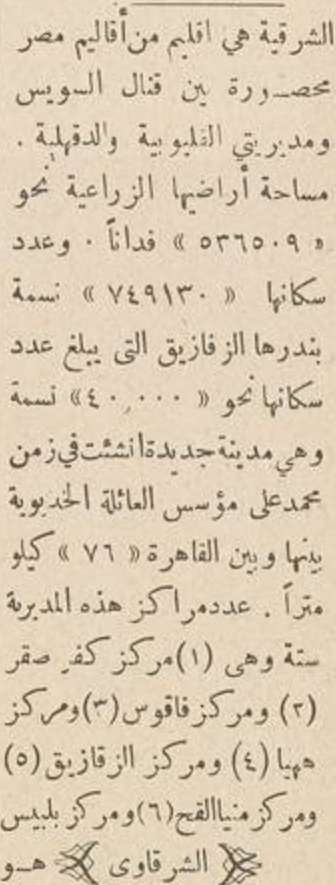 الشرقية هي اقليم من أقاليم مصر
محصورة بين قنال السويس
ومديريتي القليوبية والدقهلية .
مساحة أراضيها الزراعية نحو
« ٥٣٦٥٠٩ » فداناً . وعدد
سكانها « ٧٤٩١٣٠ » نسمة
بندرها الزفازيق التى يبلغ عدد
سكانها نحو « ٤٠,٠٠٠ » نسمة
وهي مدينة جديدة انشئت في زمن
محمد على مؤسس العائلة الخديوية
بينها وبين القاهرة « ٧٦ » كيلو
متراً . عدد مراكز هذه المديرية
ستة وهى (١) مركز كفر صقر
(٢) ومركز فاقوس (٣) ومركز
ههيا (٤) ومركز الزقازيق (٥)
ومركز منيا القمح (٦) ومركز بلبيس
الشرقاوى هو